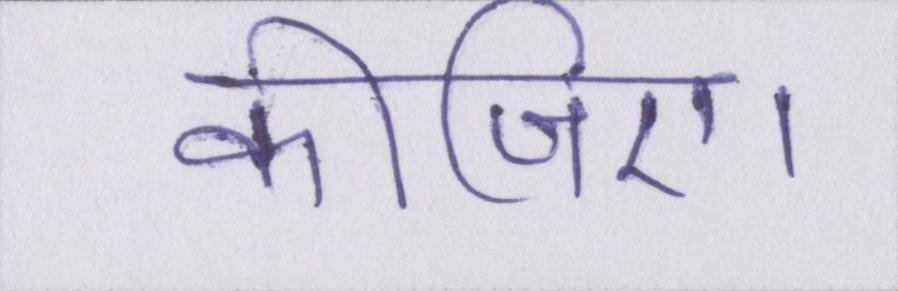 कीजिए।